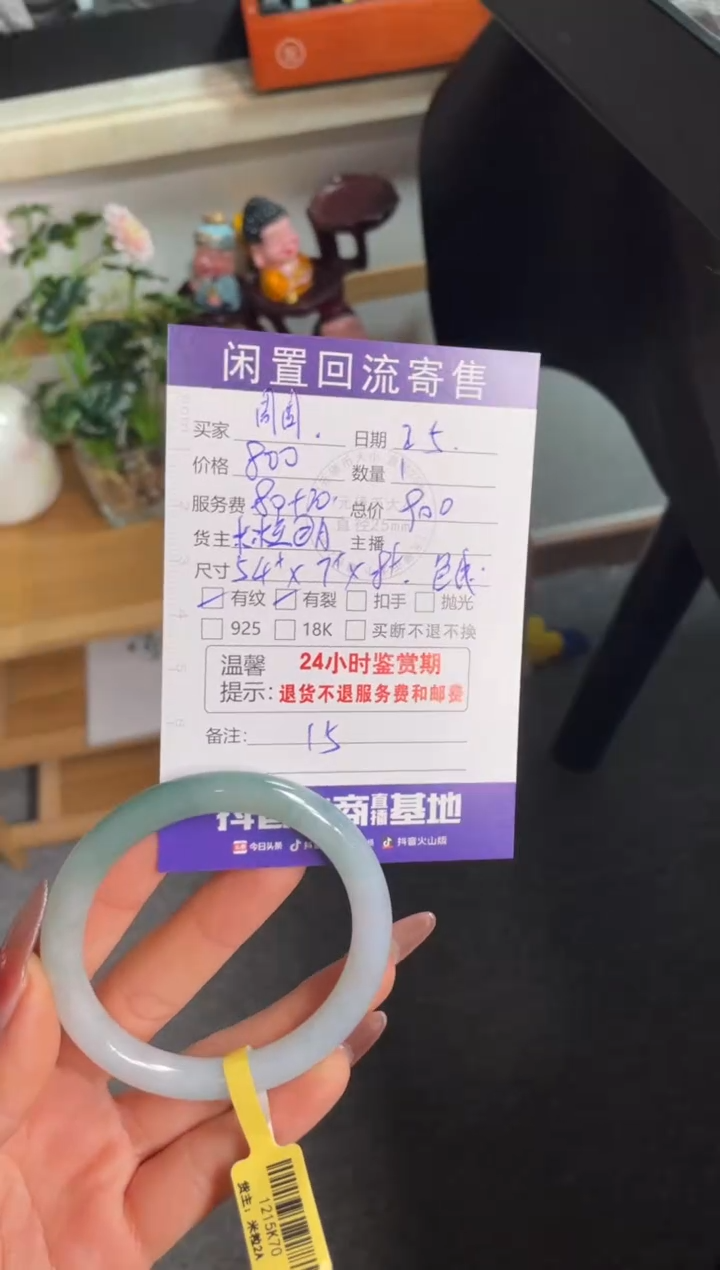 闲置回流寄售
买家 圆圆. 日期 25.
价格 800 数量 1
服务费 80+20. 总价 900
货主 主播
尺寸 54⁺×7⁺×8⁺.
有纹 有裂 扣手 抛光
925 18K 买断不退不换
温馨 24小时鉴赏期
提示: 退货不退服务费和邮费
备注: 15
商直播基地
今日头条 抖音 抖音火山版
1215K70
货主: 米粒2A